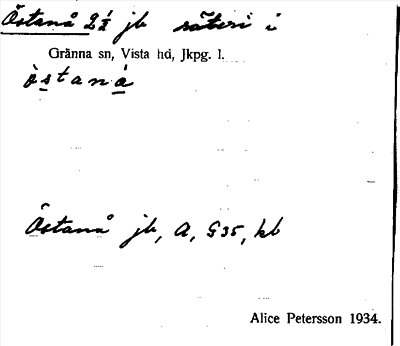 Östanå 2½ jb säteri i
Gränna sn, Vista hd, Jkpg. l.
ò̀stanà
Östanå jb, A, G35, kb
Alice Petersson 1934.